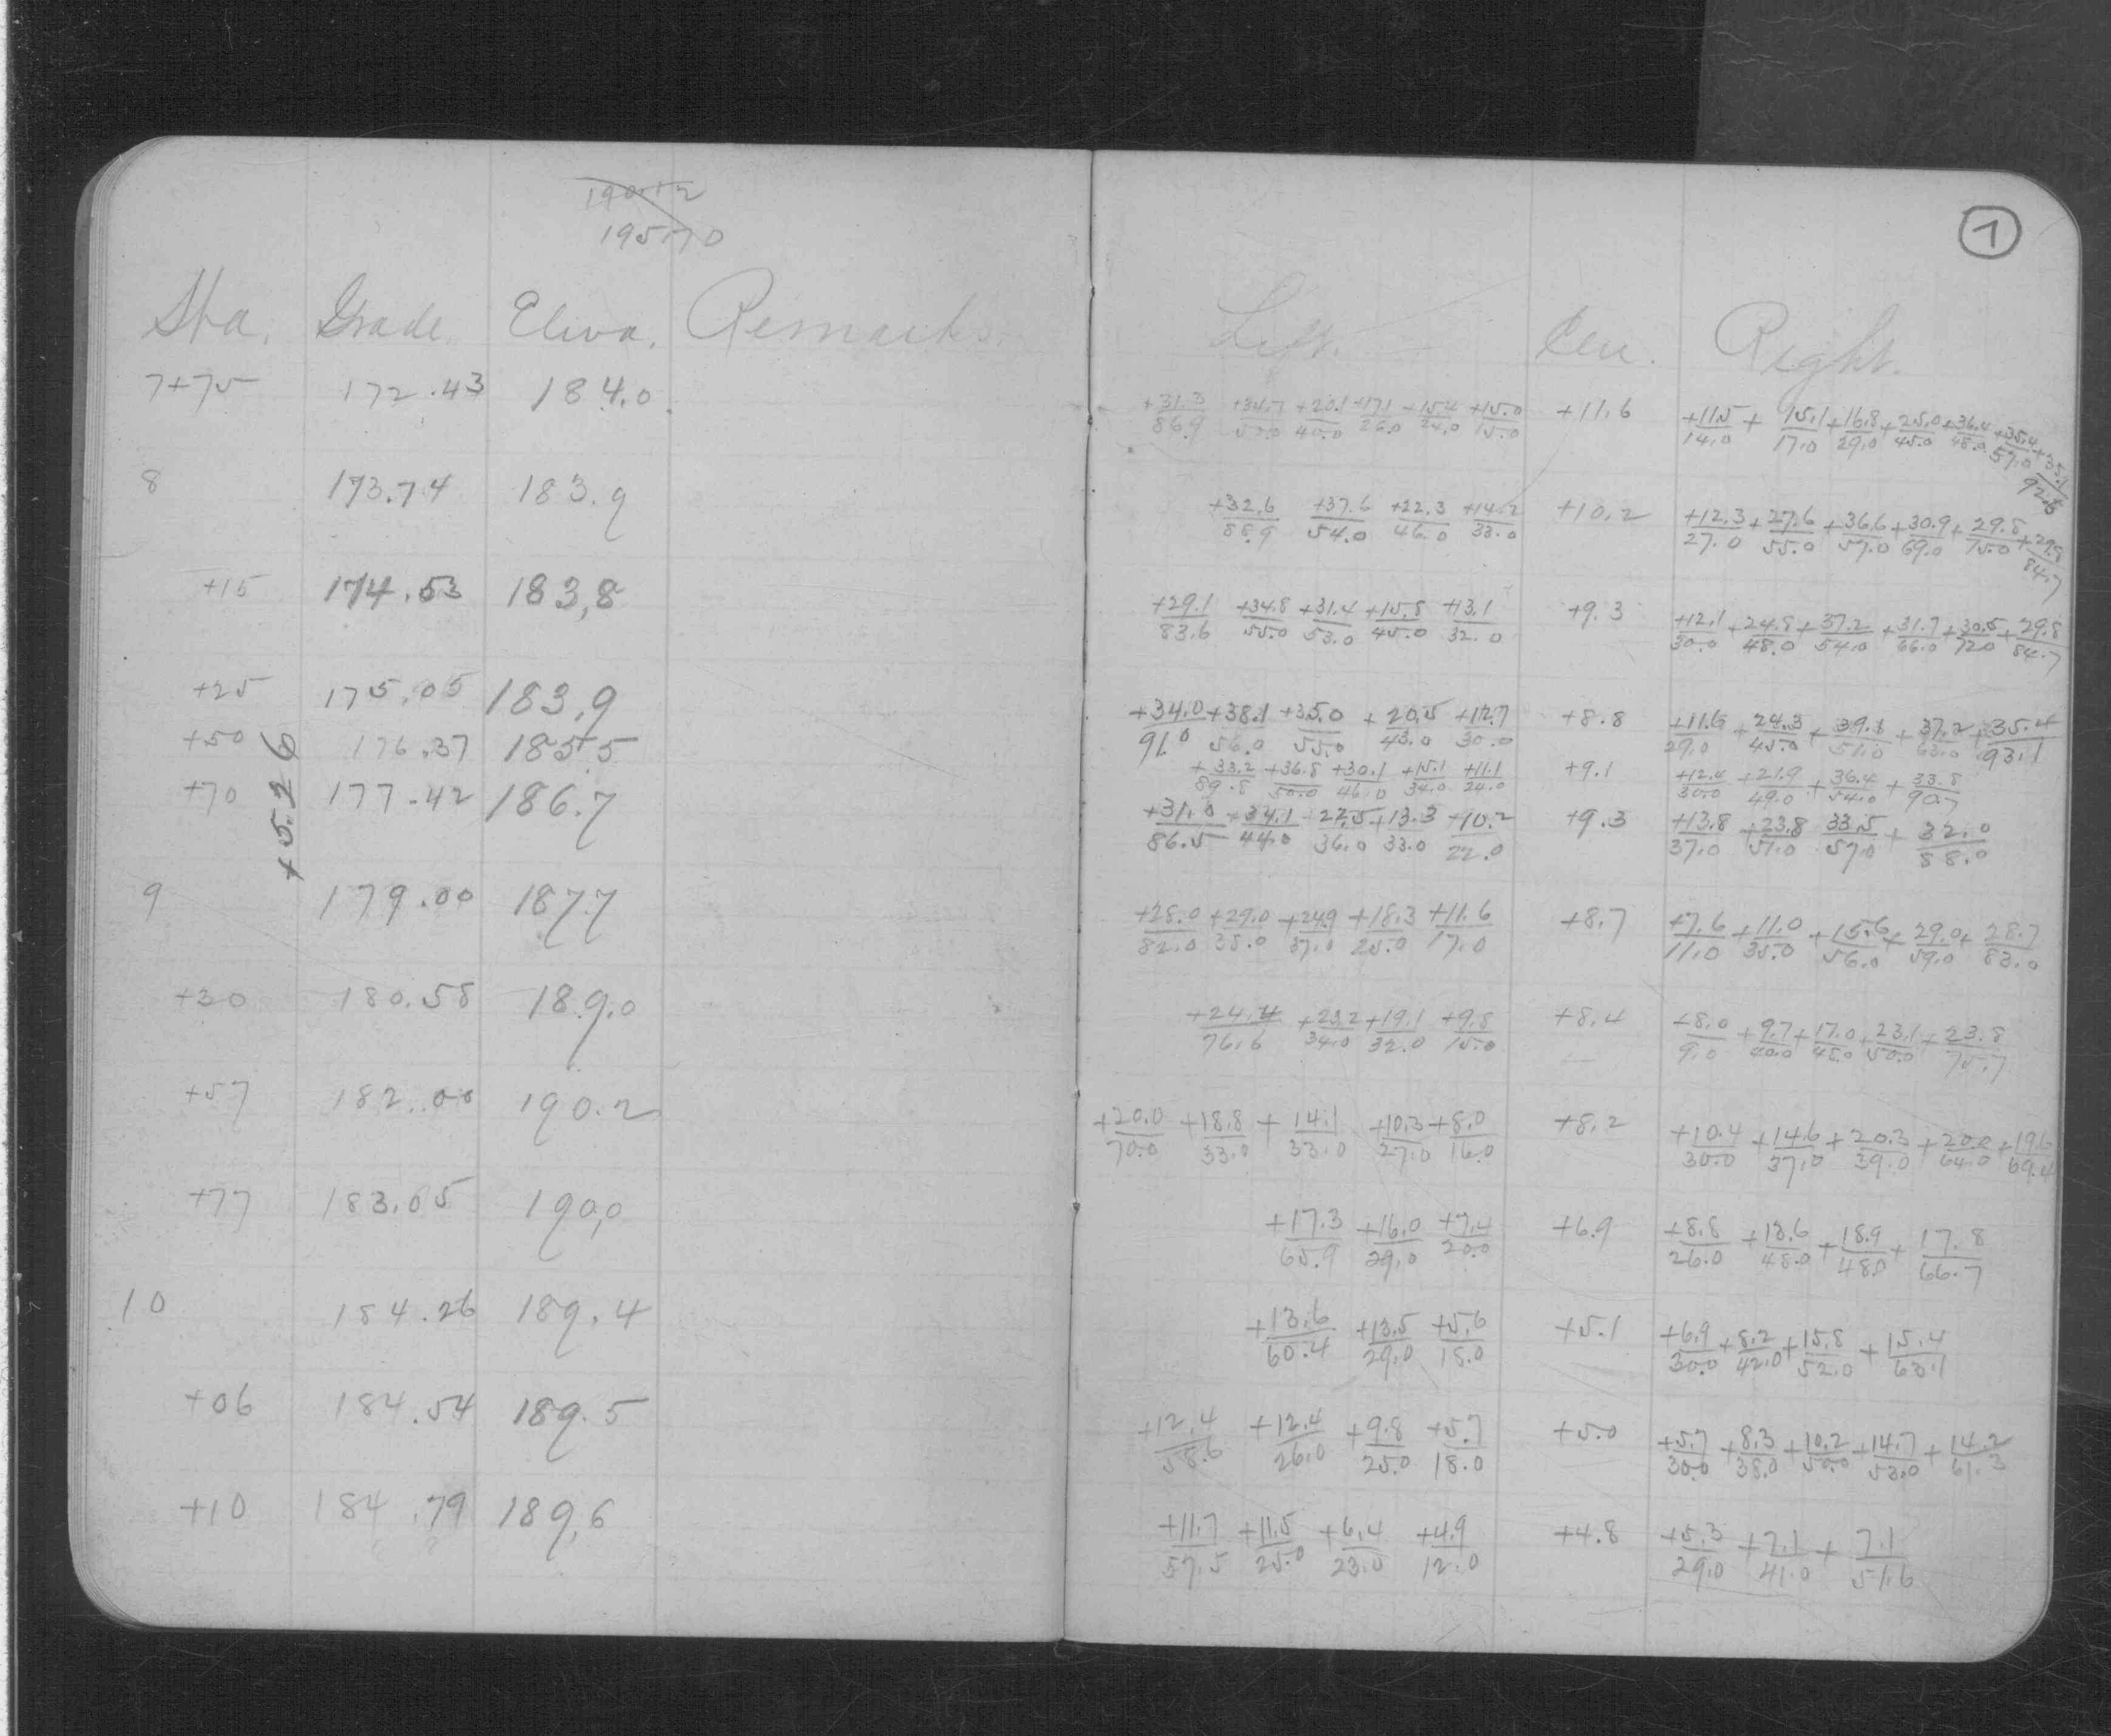 190.12
195.70
1
Sta. Grade. Eleva. Remarks.
Left. Cen. Right.
7+75 172.43 184.0 +31.3/86.9 +34.7/50.0 +20.1/40.0 +17.1/26.0 +15.4/24.0 +15.0/15.0 +11.6 +11.5/14.0 + 15.1/17.0 +16.8/29.0 +25.0/45.0 +36.4/48.0 +35.4/57.0 +35.1/92.6
8 173.74 183.9 +32.6/88.9 +37.6/54.0 +22.3/46.0 +14.2/33.0 +10.2 +12.3/27.0 +27.6/55.0 +36.6/57.0 +30.9/69.0 + 29.8/75.0 +29.8/84.7
+15 174.53 183.8 +29.1/83.6 +34.8/55.0 +31.4/53.0 +15.8/45.0 +13.1/32.0 +9.3 +12.1/30.0 +24.8/48.0 +37.2/54.0 +31.7/66.0 +30.5/72.0 +29.8/84.7
+25 175.05 183.9 +34.0/91.0 +38.1/56.0 +35.0/55.0 +20.5/43.0 +12.7/30.0 +8.8 +11.6/29.0 +24.3/45.0 +39.1/51.0 +37.2/63.0 +35.4/93.1
+50 176.37 185.5 +33.2/89.8 +36.8/50.0 +30.1/46.0 +15.1/34.0 +11.1/24.0 +9.1 +12.4/30.0 +21.9/49.0 +36.4/54.0 +33.8/90.7
+70 177.42 186.7 +31.0/86.5 +34.1/44.0 +22.5/36.0 +13.3/33.0 +10.2/22.0 +9.3 +13.8/37.0 +23.8/51.0 33.5/57.0 + 32.0/88.0
+5.26
9 179.00 187.7 +28.0/82.0 +29.0/38.0 +24.9/37.0 +18.3/25.0 +11.6/17.0 +8.7 +7.6/11.0 +11.0/35.0 +15.6/56.0 + 29.0/59.0 + 28.7/83.0
+30 180.58 189.0 +24.4/76.6 +23.2/34.0 +19.1/32.0 +9.8/15.0 +8.4 +8.0/9.0 +9.7/40.0 +17.0/48.0 +23.1/50.0 +23.8/75.7
+57 182.00 190.2 +20.0/70.0 +18.8/33.0 + 14.1/33.0 +10.3/27.0 +8.0/16.0 +8.2 +10.4/30.0 +14.6/37.0 +20.3/39.0 +20.0/64.0 +19.6/69.4
+77 183.05 190.0 +17.3/65.9 +16.0/29.0 +7.4/20.0 +6.9 +8.8/26.0 +13.6/48.0 +18.9/48.0 + 17.8/66.7
10 184.26 189.4 +13.6/60.4 +13.5/29.0 +5.6/18.0 +5.1 +6.9/30.0 +8.2/42.0 +15.8/52.0 +15.4/63.1
+06 184.54 189.5 +12.4/58.6 +12.4/26.0 +9.8/25.0 +5.7/18.0 +5.0 +5.7/30.0 +8.3/38.0 +10.2/50.0 +14.7/53.0 + 14.2/61.3
+10 184.79 189.6 +11.7/57.5 +11.5/25.0 +6.4/23.0 +4.9/12.0 +4.8 +5.3/29.0 +7.1/41.0 + 7.1/51.6